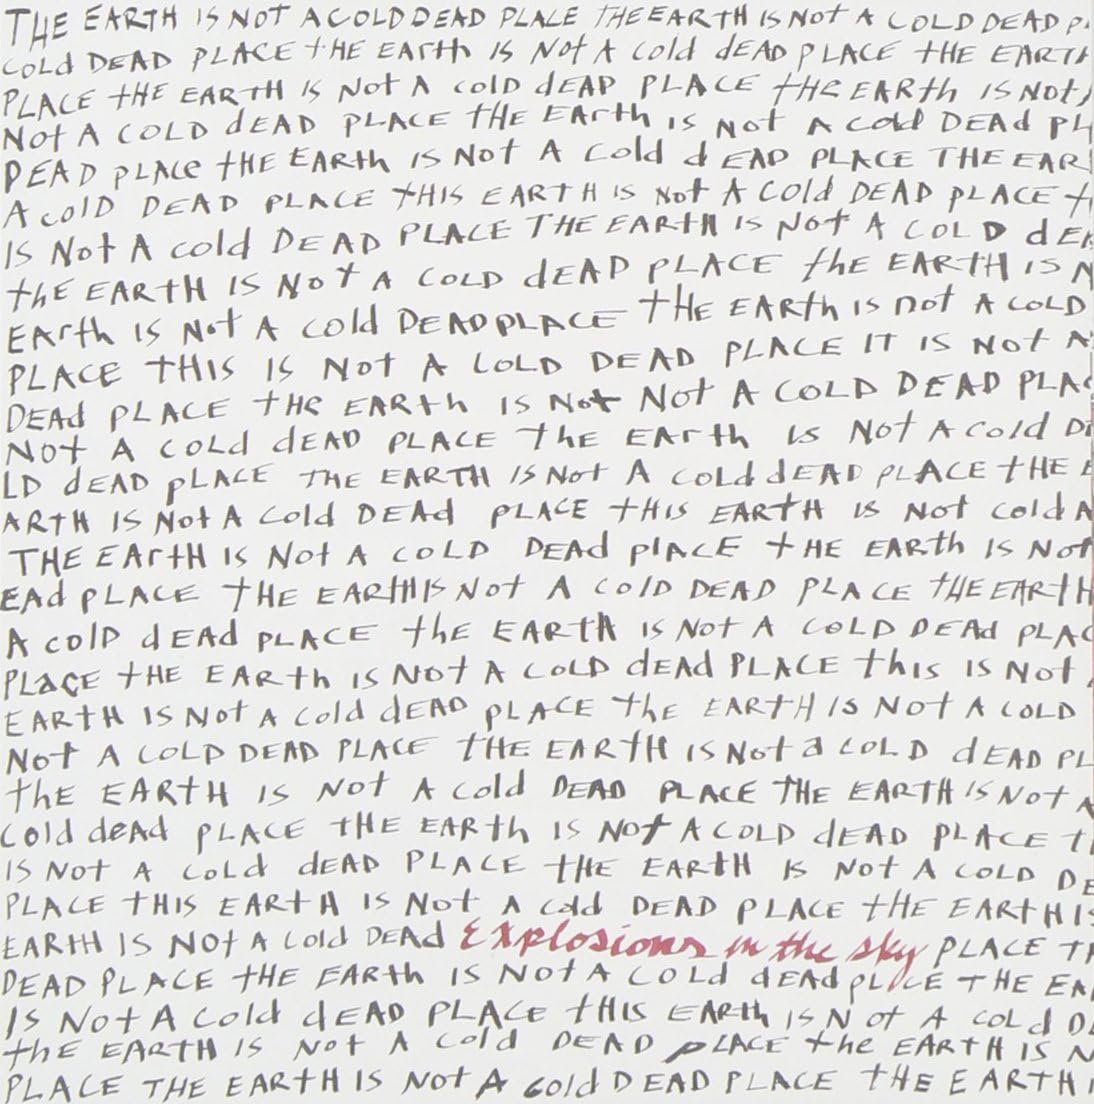 THE EARTH IS NOT A COLD DEAD PLACE THE EARTH IS NOT A COLD DEAD P
COLd DEAD PLACE tHE EARth IS Not A Cold dEAD PLACE tHE EARTH
PLACE tHE EARTH IS Not A COLD dEAD PLACE tHE EARth IS Not
Not A COLD dEAD PLACE tHE EArth IS Not A Cold DEAd PL
DEAD pLACe tHE EARth IS Not A Cold d EAD PLACE THE EAR
A colD DEAD PLACE tHIS EARTH IS Not A Cold DEAD PLACE t
IS Not A cold DEAD PLACE THE EARtH IS Not A COLD dEA
thE EARTH IS NoT A COLD dEAD PLACE thE EARTH IS N
EARth IS Not A Cold DEAD PLACE tHE EARth IS not A COLD
PLACE THIS IS Not A COLD DEAD PLACE IT IS Not A
DEAd PLACE tHe EARth IS Not Not A COLD DEAD PLAC
Not A COLd dEAD PLACE thE EARth IS Not A Cold D
LD dEAD pLACE THE EARTH IS Not A COLd dEAD PLACE tHE E
ARTH IS Not A Cold DEAd PLACE tHIS EARtH IS Not cold A
THE EArtH IS Not A COLD DEAd plACE tHE EARth IS Not
EAd PLACE THE EARTH IS NOT A COLD DEAD PLACE tHE EARTH
A colD dEAd PLACE thE EARTH IS Not A COLD DEAd PLAC
PLACE tHE EARth IS Not A COLD dEAd PLACE this IS Not
EARtH IS Not A Cold dEAD pLACE thE EARTH IS Not A COLD
Not A COLD DEAD PLACE tHE EARtH IS Not a COLD dEAD PL
thE EARTH IS Not A Cold DEAD PLACE THE EARTH IS Not A
Cold deAd PLACE tHE EARth IS Not A COLD dEAD PLACE t
IS Not A Cold dEAD PLACE tHE EARtH IS Not A COLD DE
PLACE tHIS EARtH IS Not A Cold DEAD PLACE tHE EARtH IS
EARtH IS Not A Cold DEAD Explosions in the sky PLACE TH
DEAD PLACE tHE EARth IS Not A COLd dEAd pLACE THE EA
IS Not A Cold dEAD PLACE tHIS EARth IS Not A COLd D
thE EARTH IS Not A Cold DEAD pLACE the EARTH IS N
PLACE THE EARTH IS Not A Cold DEAD PLACE tHE EARTH